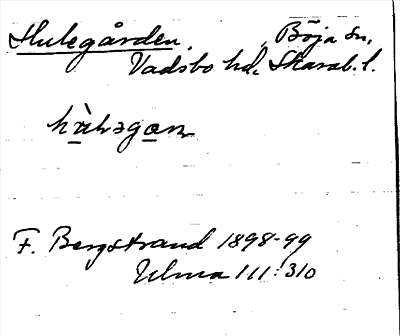 Hulegården. Böja sn,
Vadsbo hd. Skarab. l.
F. Bergstrand 1898-99
Ulma 111:310